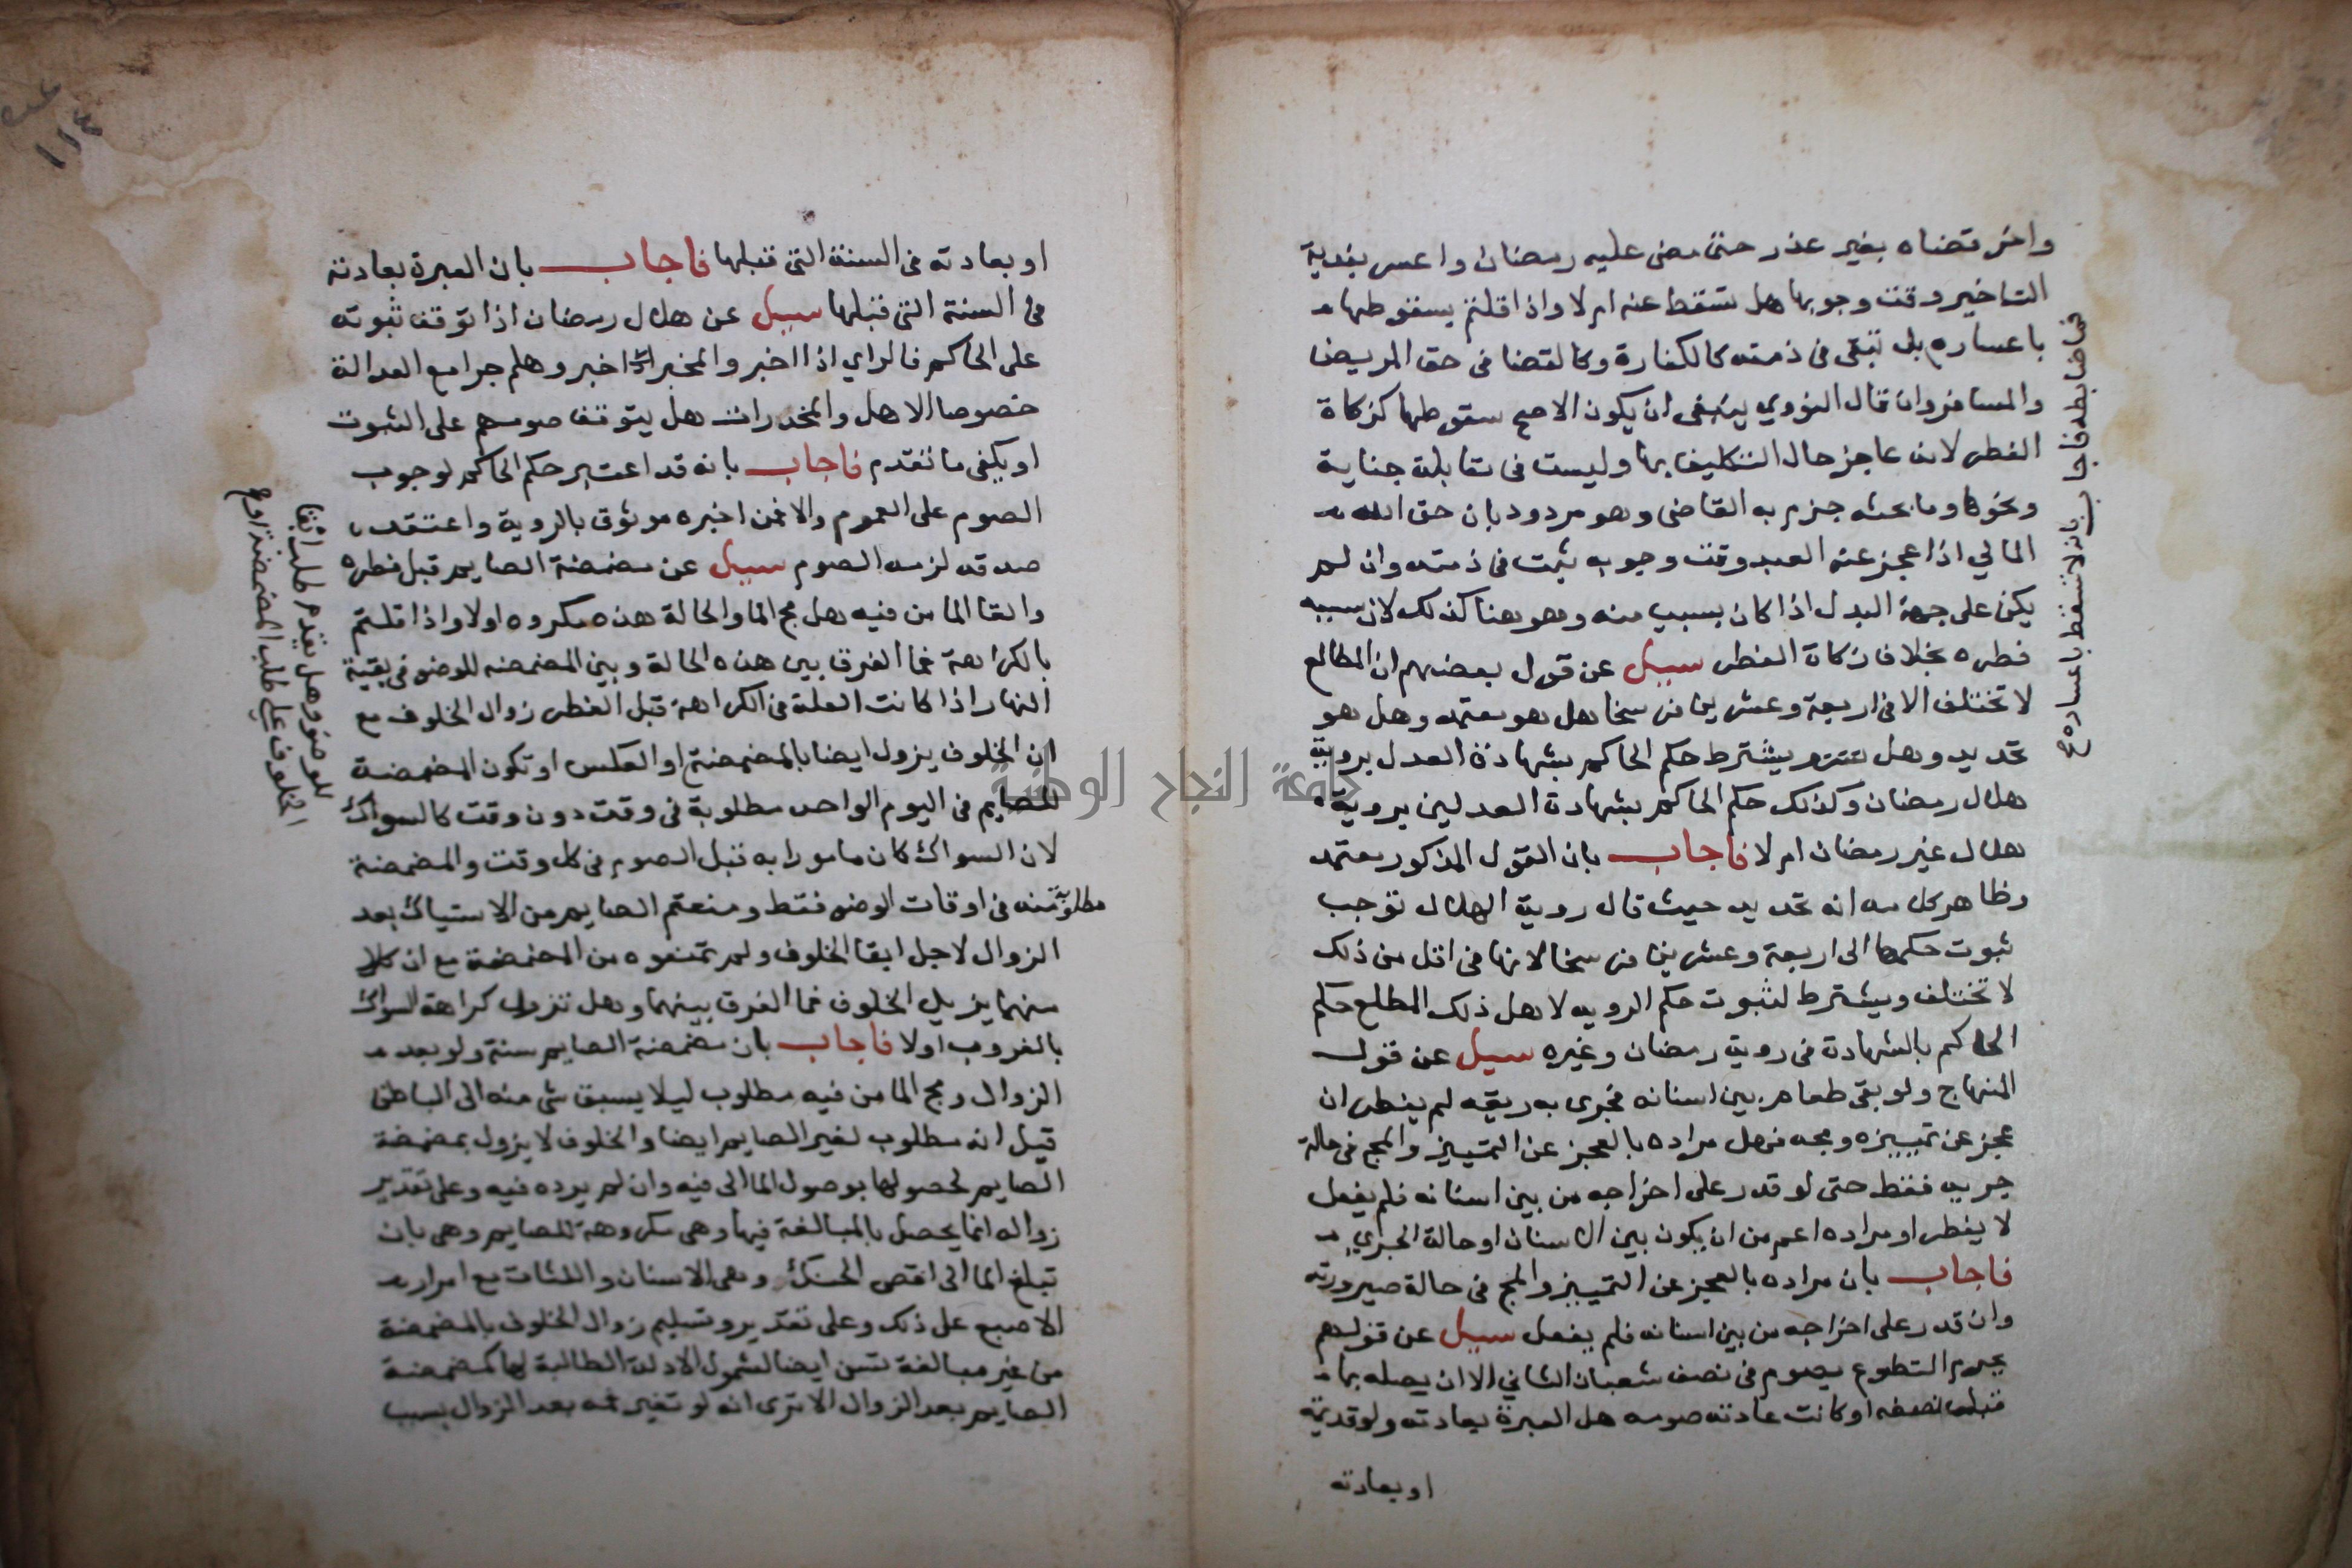 واخر قضاه بغير عذر حتى مضى عليه رمضان واعسر بفدية
التاخير وقت وجوبها هل تسقط عنه ام لا واذا قلتم بسقوطها
باعساره بل تبقى في ذمته كالكفارة وكالقضا في حق المريض
والمسافر وان قال النووي ينبغي ان يكون الاصح سقوطها كزكاة
الفطر لانه عاجز حال التكليف بها وليست في مقابلة جناية
ونحوها وما بحثه جزم به القاضي وهو مردود بان حق الله
المالي اذا عجز عنه العبد وقت وجوبه ثبت في ذمته وان لم
يكن على جهة البدل اذا كان بسبب منه وهو هنا كذلك لان سببه
فطره بخلاف زكاة الفطر سيل عن قول بعضهم ان المطالع
لا تختلف الا في اربعة وعشرين فرسخا هل هو معتمد وهل هو
تحديد وهل يشترط حكم الحاكم بشهادة العدل بروية
هلال رمضان وكذلك حكم الحاكم بشهادة العدلين بروية
هلال غير رمضان ام لا فاجاب بان القول المذكور معتمد
وظاهر كلامه انه تحديد حيث قال روية الهلال توجب
ثبوت حكمها الى اربعة وعشرين فرسخا لانها في اقل من ذلك
لا تختلف ويشترط لثبوت حكم الرويه لاهل ذلك المطلع حكم
الحاكم بالشهادة في روية رمضان وغيره سيل عن قول
المنهاج ولو بقي طعام بين اسنانه فجرى به ريقه لم يفطر ان
عجز عن تمييزه ومجه فهل مراده بالعجز عن التمييز والمج في حالة
جريه فقط حتى لو قدر على اخراجه من بين اسنانه فلم يفعل
لا يفطر او مراده اعم من ان يكون بين الاسنان او حالة الجري
فاجاب بان مراده بالعجز عن التمييز والمج في حالة صيرورته
وان قدر على اخراجه من بين اسنانه فلم يفعل سيل عن قولهم
يحرم التطوع بصوم في نصف شعبان الثاني الا ان يصله بما
قبل نصفه او كانت عادته صومه هل العبرة بعادته ولو قديمة
او بعادته
فاجاب بانه لا تسقط باعساره
او بعادته في السنة التي قبلها فاجاب بان العبرة بعادته
في السنة التي قبلها سيل عن هلال رمضان اذا توقف ثبوته
على الحاكم فالراي اذا اخبر والمخبر اخبر وهلم جرا مع العدالة
خصوصا الاهل والمخدرات هل يتوقف صومهم على الثبوت
او يكفي ما تقدم فاجاب بانه قد اعتبر حكم الحاكم لوجوب
الصوم على العموم والا فمن اخبره موثوق بالروية واعتقد
صدقه لزمه الصوم سيل عن مضمضة الصايم قبل فطره
والقا الما من فيه هل مج الما والحالة هذه مكروه اولا واذا قلتم
بالكراهة فما الفرق بين هذه الحالة وبين المضمضه للوضو في بقية
النهار اذا كانت العلة في الكراهة قبل الفطر زوال الخلوف مع
ان الخلوف يزول ايضا بالمضمضة او العكس او تكون المضمضة
للصايم في اليوم الواحد مطلوبة في وقت دون وقت كالسواك
لان السواك كان مامورا به قبل الصوم في كل وقت والمضمضة
مطلوبة منه في اوقات الوضو فقط ومنعتم الصايم من الاستياك بعد
الزوال لاجل ابقا الخلوف ولم تمنعوه من المضمضة مع ان كلا
منهما يزيل الخلوف فما الفرق بينهما وهل تزول كراهة السواك
بالغروب اولا فاجاب بان مضمضة الصايم سنة ولو بعد
الزوال ومج الما من فيه مطلوب ليلا يسبق شي منه الى الباطن
قيل انه مطلوب لغير الصايم ايضا والخلوف لا يزول بمضمضة
الصايم لحصولها بوصول الما الى فيه وان لم يرده فيه وعلى تقدير
زواله انما يحصل بالمبالغة فيها وهي مكروهة للصايم وهي بان
تبلغ الما الى اقصى الحنك وجهى الاسنان واللثات مع امرار
الاصبع على ذلك وعلى تقدير وتسليم زوال الخلوف بالمضمضة
من غير مبالغة تسن ايضا لشمول الادلة الطالبة لها كمضمضة
الصايم بعد الزوال الا ترى انه لو تغير فمه بعد الزوال بسبب
للوضو وهل يقدم طلب ابقا
الخلوف على طلب المضمضة
جامعة النجاح الوطنية